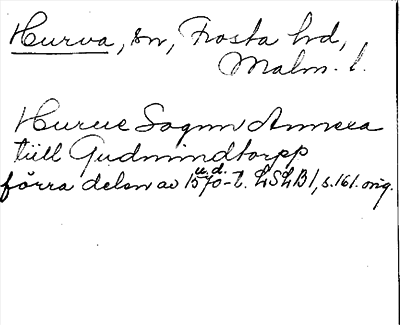 Hurva, sn, Frosta hd,
Malm. l.
Hurue Sognn Annexa
tiill Gudmindtorpp
förra delen av 1570-t. LSLB 1, s. 161. orig.
u. d.